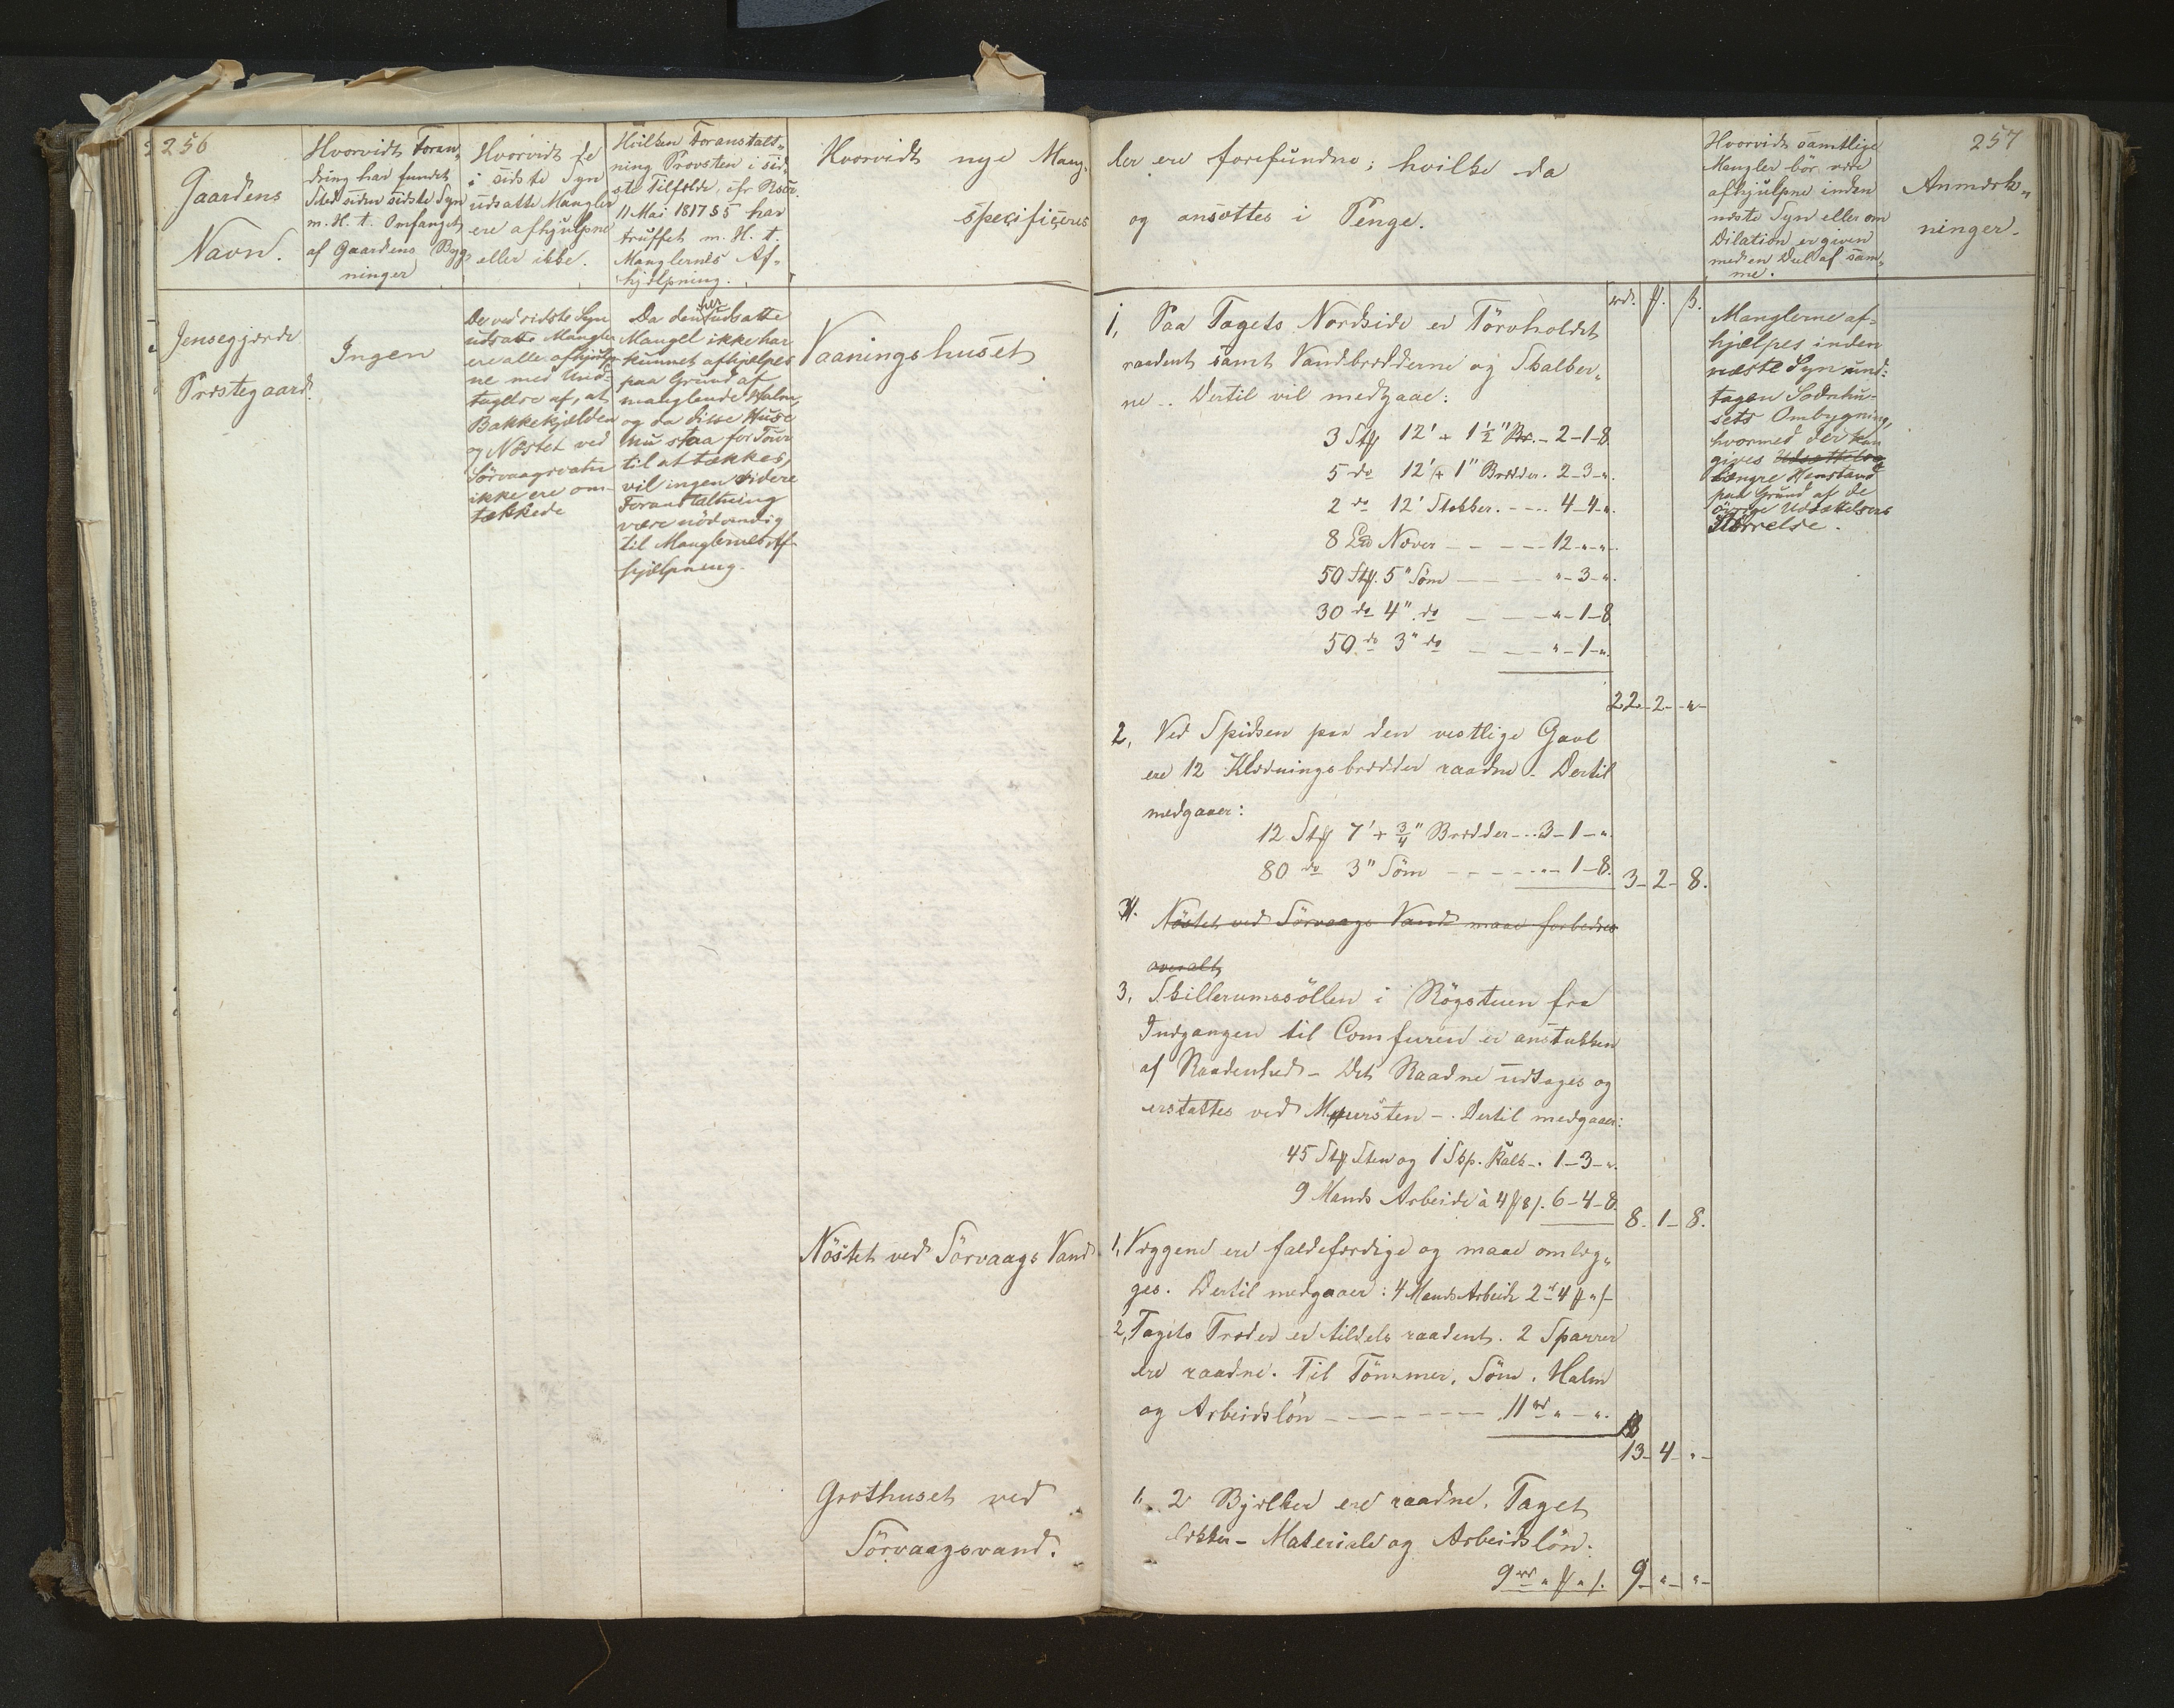 256
Gaardens
Navn.
Hvorvidt Foran„
dring har fundet
Sted siden sidste Syn
m. H. t. Omfanget
af Gaardens Byg„
ninger
Hvorvidt de
i sidste Syn
udsatte Mangler
ere afhjulpne
eller ikke.
Hvilken Foranstalt„
ning Provsten i sid„
ste Tilfælde, cfr Rscr.
11 Mai 1817 § 5 har
truffet m. H. t.
Manglernes Af„
hjælpning.
Hvorvidt nye Mang„
specificeres
Jensegjerde
Præstegaard.
Ingen
De ved sidste Syn
udsatte Mangler
ere alle afhjulp
ne med Und„
tagelse af, at
Bakkekjælden
og Nöstet ved
Sörvaagsvatn
ikke ere om„
tækkede
Da den her udsatte
Mangel ikke har
kunnet afhjælpes
paa Grund af
manglende Halm,
og da disse Huse
nu staa for Tour
til at tækkes,
vil ingen videre
Foranstaltning
være nödvendig
til Manglernes Af„
hjælpning.
Vaaningshuset
Nöstet ved Sörvaags Vand
Grothuset ved
Sörvaagsvand.
257
ler ere forefundne; hvilke da
og ansættes i Penge.
Hvorvidt samtlige
Mangler bör være
afhjulpne inden
næste Syn eller om
Dilation er given
med en Deel af sam„
me.
Anmærk„
ninger.
rd. ß.
1, Paa Tagets Nordside er Törvholdet
raadent samt Vandbrædderne og Skalber„
ne -. Dertil vil medgaae:
3 Stk 12' + 1½" Br. - 2-1-8
5 do 12' + 1" Brædder. 2-3-„.
2 do 12' Stokker. - - - 4-4-„.
8 Næver - - - - 12-„-„.
50 Stk. 5" Söm - - - „-3-„.
30 do 4" do - - - „-1-8
50 do 3" do - - - „-1-„.
22-2-„-
2, Ved Spidsen paa den vestlige Gavl
ere 12 Klædningsbrædder raadne - Dertil
medgaaer:
12 Stk 7' + ¾" Brædder - - 3-1-„.
80 do 3" Söm - - - - „-1-8. 3-2-8.
Nöstet ved Sörvaags Vand maae forbedres
overalt,
3, Skillerumssöllen i Rögstuen fra
Indgangen til Comfuren er anstukken
af Raadenhed - Det Raadne udtages og
erstattes ved Muursten -. Dertil medgaaer:
45 Stk Sten og 1 Skp. Kalk -. 1-3-„.
9 Mands Arbeide à 4 8 . 6-4-8. 8-1-8.
1, Væggene ere faldefærdige og maae omlæg„
ges. Dertil medgaaer: 4 Mands Arbeide 2 4
2, Tagets Træder er tildels raadent. 2 Sparrer
ere raadne. Til Tömmer, Söm, Halm
og Arbeidslön - - - - - - 11 rd „ - „.
13-4-„-
1, 2 Bjælker ere raadne. Taget
lækker - Materiale og Arbeidslön.
9 rd „ „ 9-„-„-
Manglerne af„
hjælpes inden
næste Syn und„
tagen Sodnhu„
sets Ombygning,
hvormed der kan
gives Udsættelse
længre Henstand
paa Grund af de
övrige Udsættelsers
Störrelse.